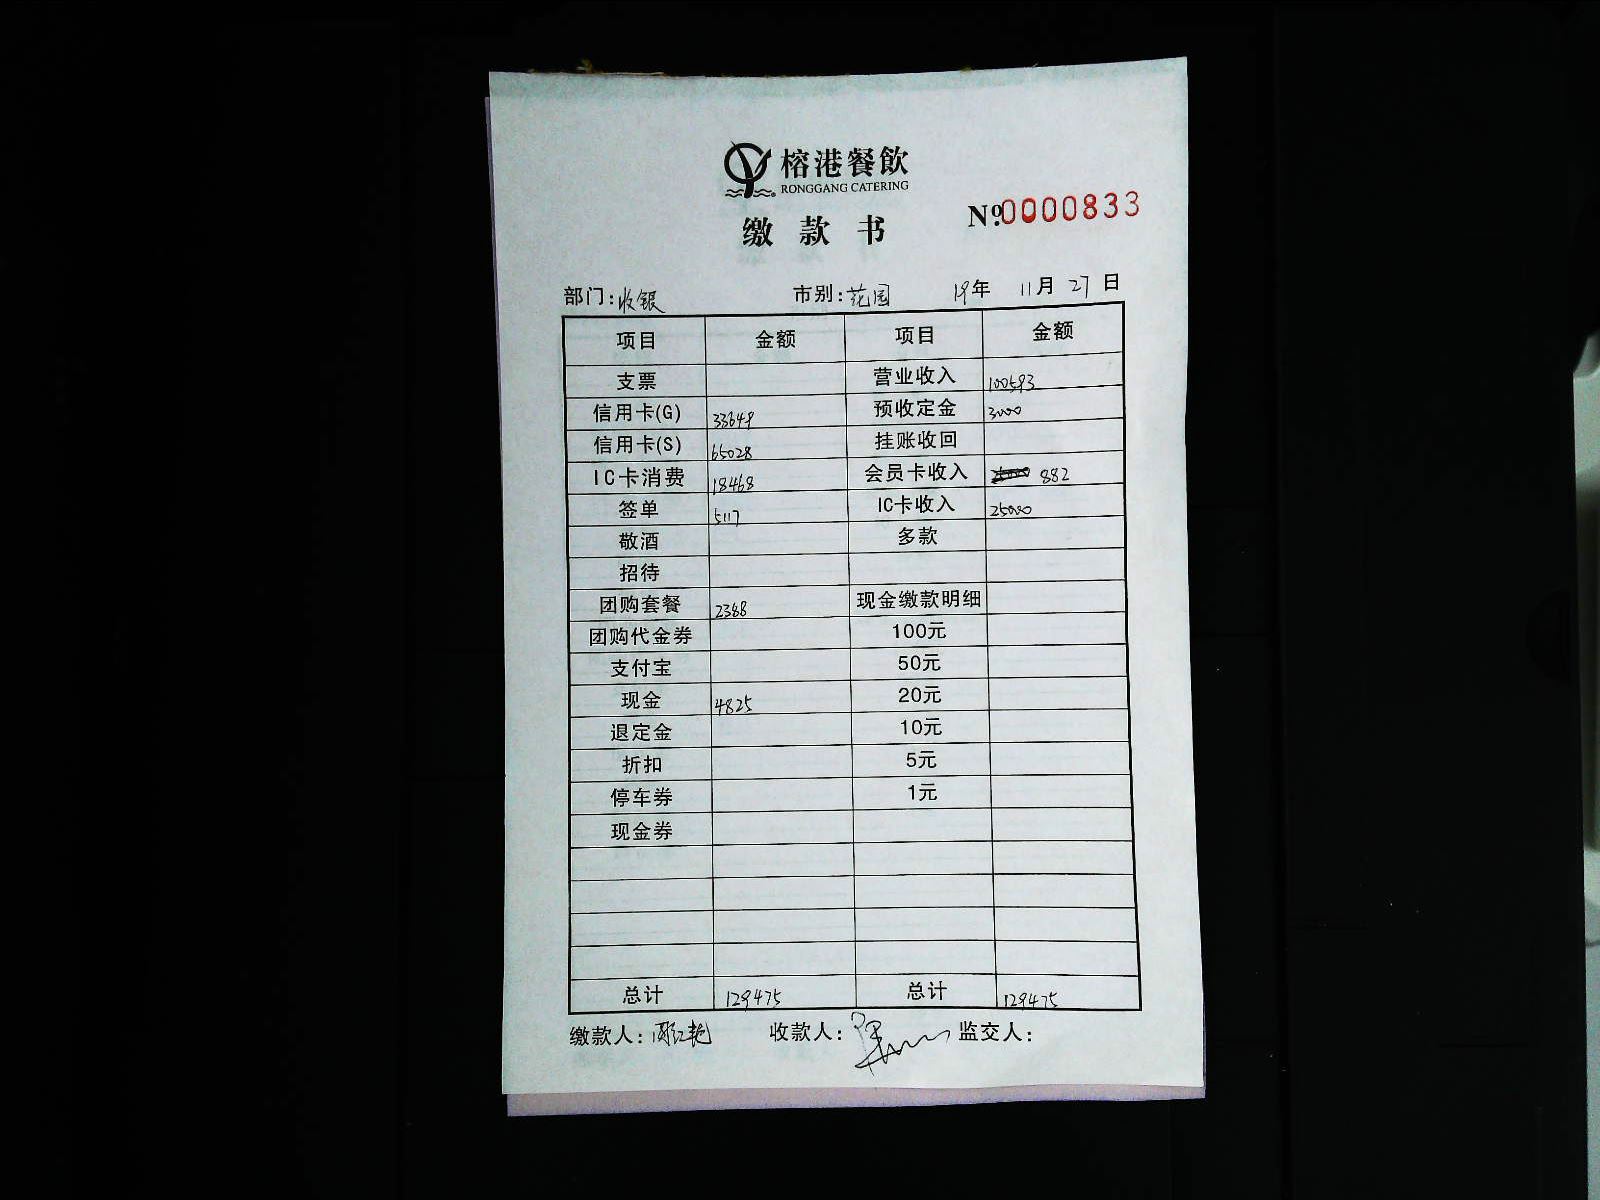 榕港餐飲
RONGGANG CATERING
缴款书
№.0000833
部门:收银 市别:花园 19年 11月 27日
项目 金额 项目 金额
支票 营业收入 100593
信用卡(G) 33649 预收定金 3000
信用卡(S) 65028 挂账收回
IC卡消费 18468 会员卡收入 882
签单 5117 IC卡收入 25000
敬酒 多款
招待
团购套餐 2388 现金缴款明细
团购代金券 100元
支付宝 50元
现金 4825 20元
退定金 10元
折扣 5元
停车券 1元
现金券
总计 129475 总计 129475
缴款人: 收款人: 监交人: